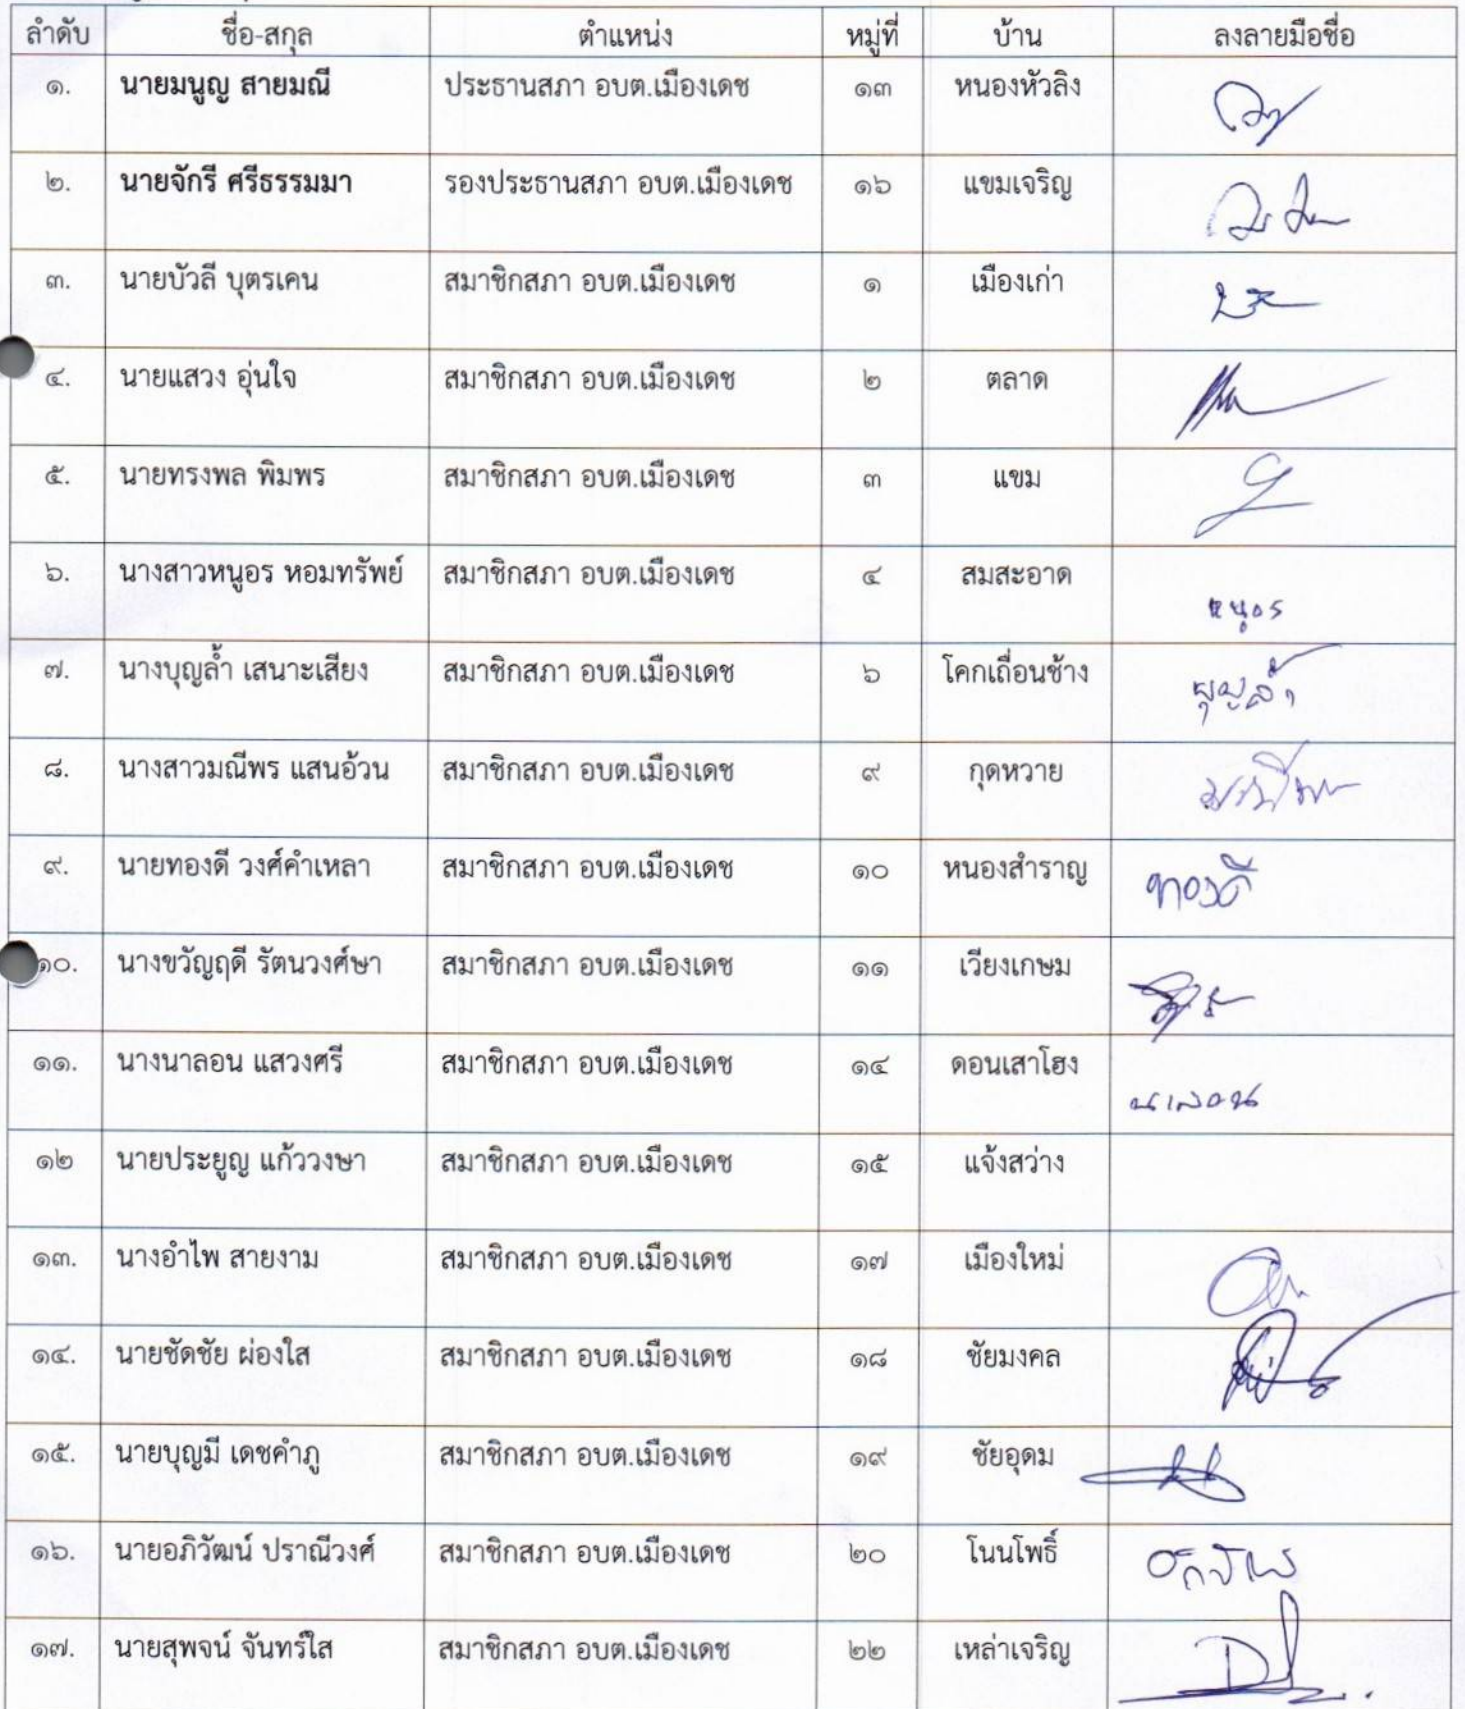 ลำดับ ชื่อ-สกุล ตำแหน่ง หมู่ที่ บ้าน ลงลายมือชื่อ
๑. นายมนูญ สายมณี ประธานสภา อบต.เมืองเดช ๑๓ หนองหัวลิง
๒. นายจักรี ศรีธรรมมา รองประธานสภา อบต.เมืองเดช ๑๖ แขมเจริญ
๓. นายบัวลี บุตรเคน สมาชิกสภา อบต.เมืองเดช ๑ เมืองเก่า
๔. นายแสวง อุ่นใจ สมาชิกสภา อบต.เมืองเดช ๒ ตลาด
๕. นายทรงพล พิมพร สมาชิกสภา อบต.เมืองเดช ๓ แขม
๖. นางสาวหนูอร หอมทรัพย์ สมาชิกสภา อบต.เมืองเดช ๔ สมสะอาด หนูอร
๗. นางบุญล้ำ เสนาะเสียง สมาชิกสภา อบต.เมืองเดช ๖ โคกเถื่อนช้าง บุญล้ำ
๘. นางสาวมณีพร แสนอ้วน สมาชิกสภา อบต.เมืองเดช ๙ กุดหวาย มณีพร
๙. นายทองดี วงศ์คำเหลา สมาชิกสภา อบต.เมืองเดช ๑๐ หนองสำราญ ทองดี
๑๐. นางขวัญฤดี รัตนวงศ์ษา สมาชิกสภา อบต.เมืองเดช ๑๑ เวียงเกษม
๑๑. นางนาลอน แสวงศรี สมาชิกสภา อบต.เมืองเดช ๑๔ ดอนเสาโฮง นาลอน
๑๒ นายประยูญ แก้ววงษา สมาชิกสภา อบต.เมืองเดช ๑๕ แจ้งสว่าง
๑๓. นางอำไพ สายงาม สมาชิกสภา อบต.เมืองเดช ๑๗ เมืองใหม่
๑๔. นายชัดชัย ผ่องใส สมาชิกสภา อบต.เมืองเดช ๑๘ ชัยมงคล
๑๕. นายบุญมี เดชคำภู สมาชิกสภา อบต.เมืองเดช ๑๙ ชัยอุดม
๑๖. นายอภิวัฒน์ ปราณีวงศ์ สมาชิกสภา อบต.เมืองเดช ๒๐ โนนโพธิ์
๑๗. นายสุพจน์ จันทร์ใส สมาชิกสภา อบต.เมืองเดช ๒๒ เหล่าเจริญ